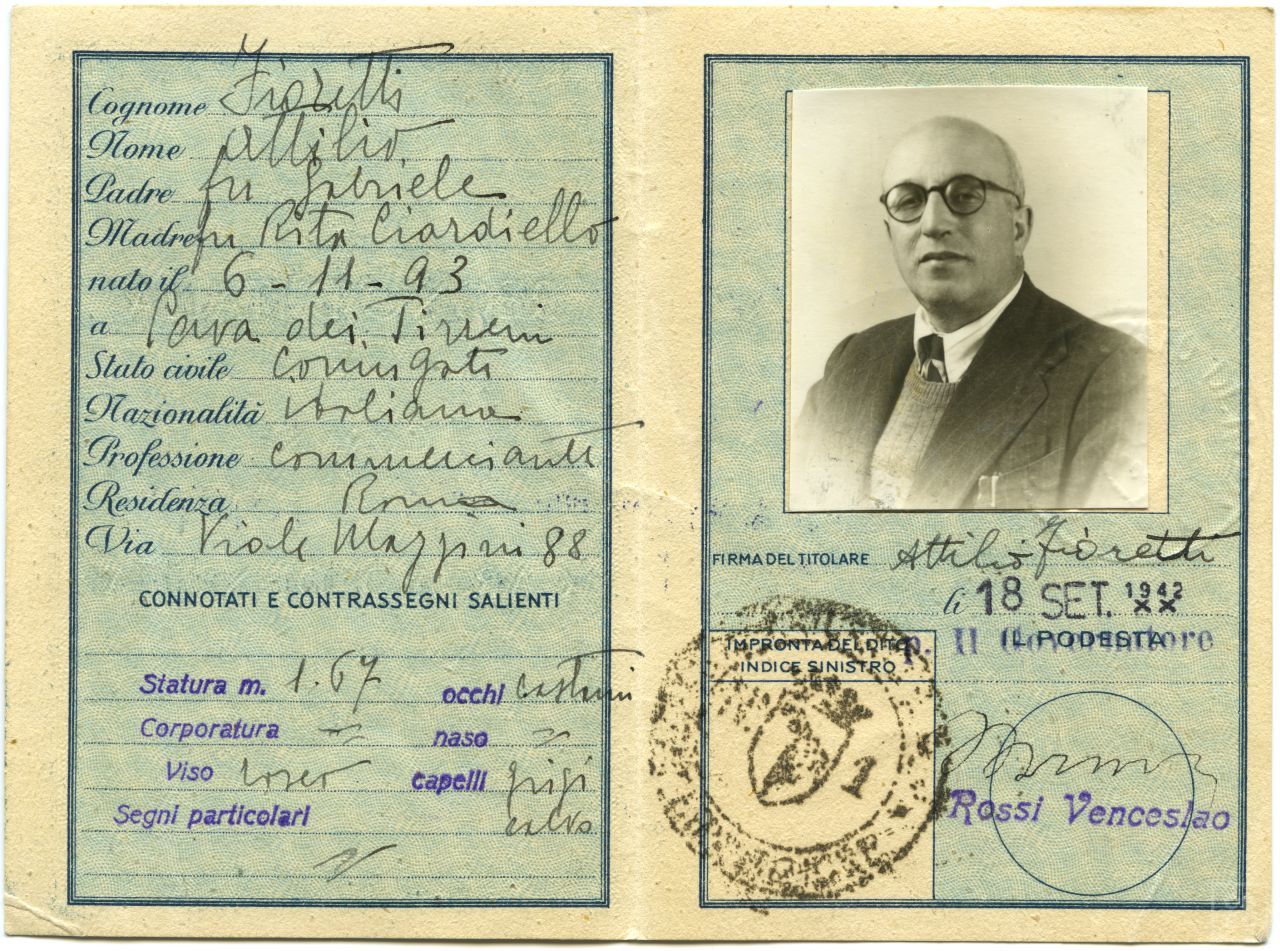 Cognome Fioretti
Nome Attilio
Padre fu Gabriele
Madre fu Rita Ciardiello
nato il 6-11-93
a Cava dei Tirreni
Stato civile Coniugato
Nazionalità italiana
Professione commerciante
Residenza Roma
Via Viale Mazzini 88
CONNOTATI E CONTRASSEGNI SALIENTI
Statura m. 1.67 occhi castani
Corporatura naso
Viso roseo capelli grigi
Segni particolari calvo
FIRMA DEL TITOLARE Attilio Fioretti
li 18 SET. 1942
XX
IL PODESTA
p. Il Governatore
IMPRONTA DEL DITO
INDICE SINISTRO
1
Rossi Venceslao